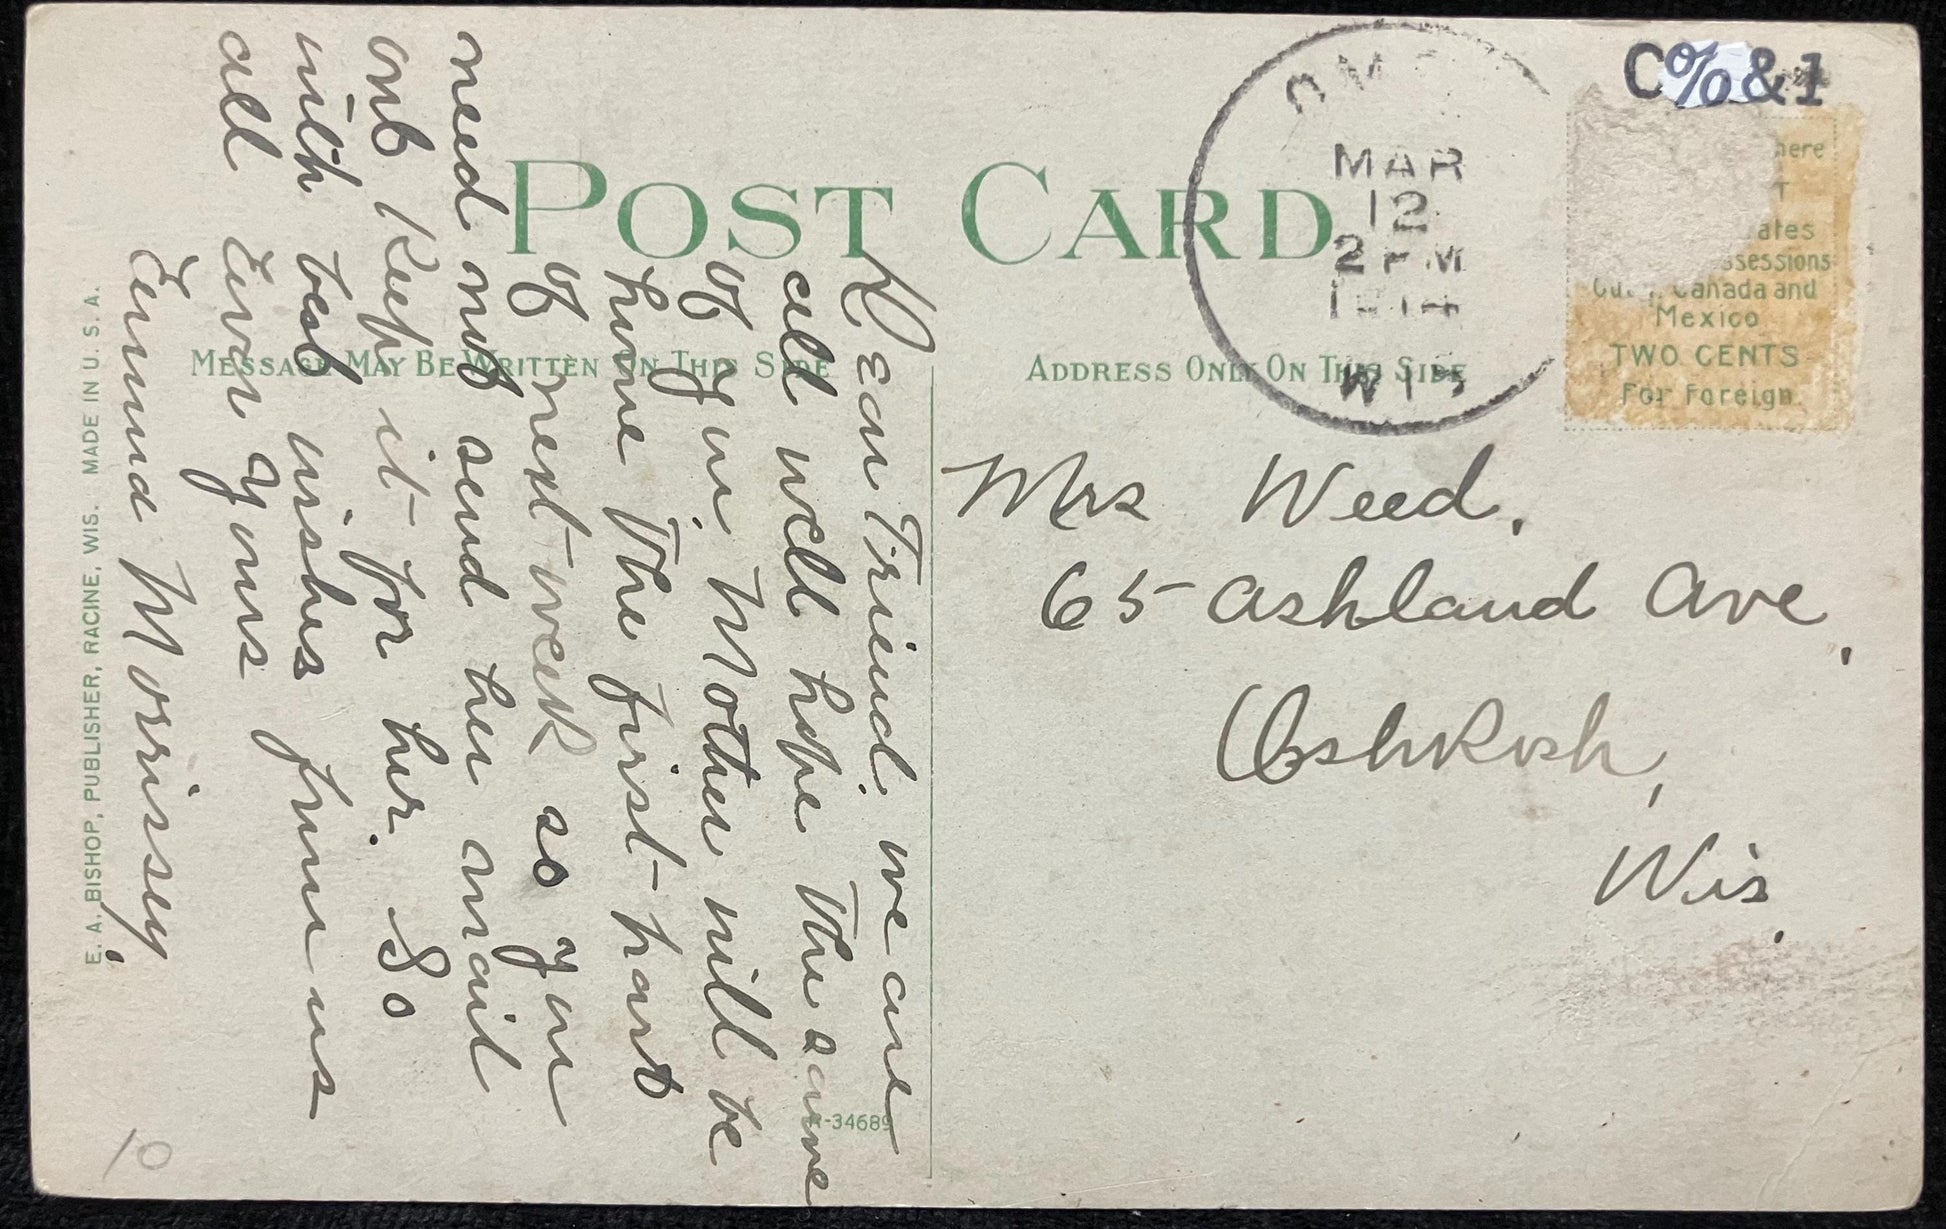 POST CARD
MESSAGE MAY BE WRITTEN ON THIS SIDE
ADDRESS ONLY ON THIS SIDE
MAR
12
2 PM
1914
WIS
C%&1
here
T
ates
ssessions
Canada and
Mexico
TWO CENTS
For Foreign.
Mrs Weed,
65 Ashland Ave,
Oshkosh,
Wis.
Dear Friend. we are
all well hope the same
of you, Mother will be
home the first part
of next week so you
need not send her mail
only Keep it for her. So
with best wishes from us
all Ever Yours
Emma Morrissey.
E. A. BISHOP, PUBLISHER, RACINE, WIS. MADE IN U. S. A.
-34689
10